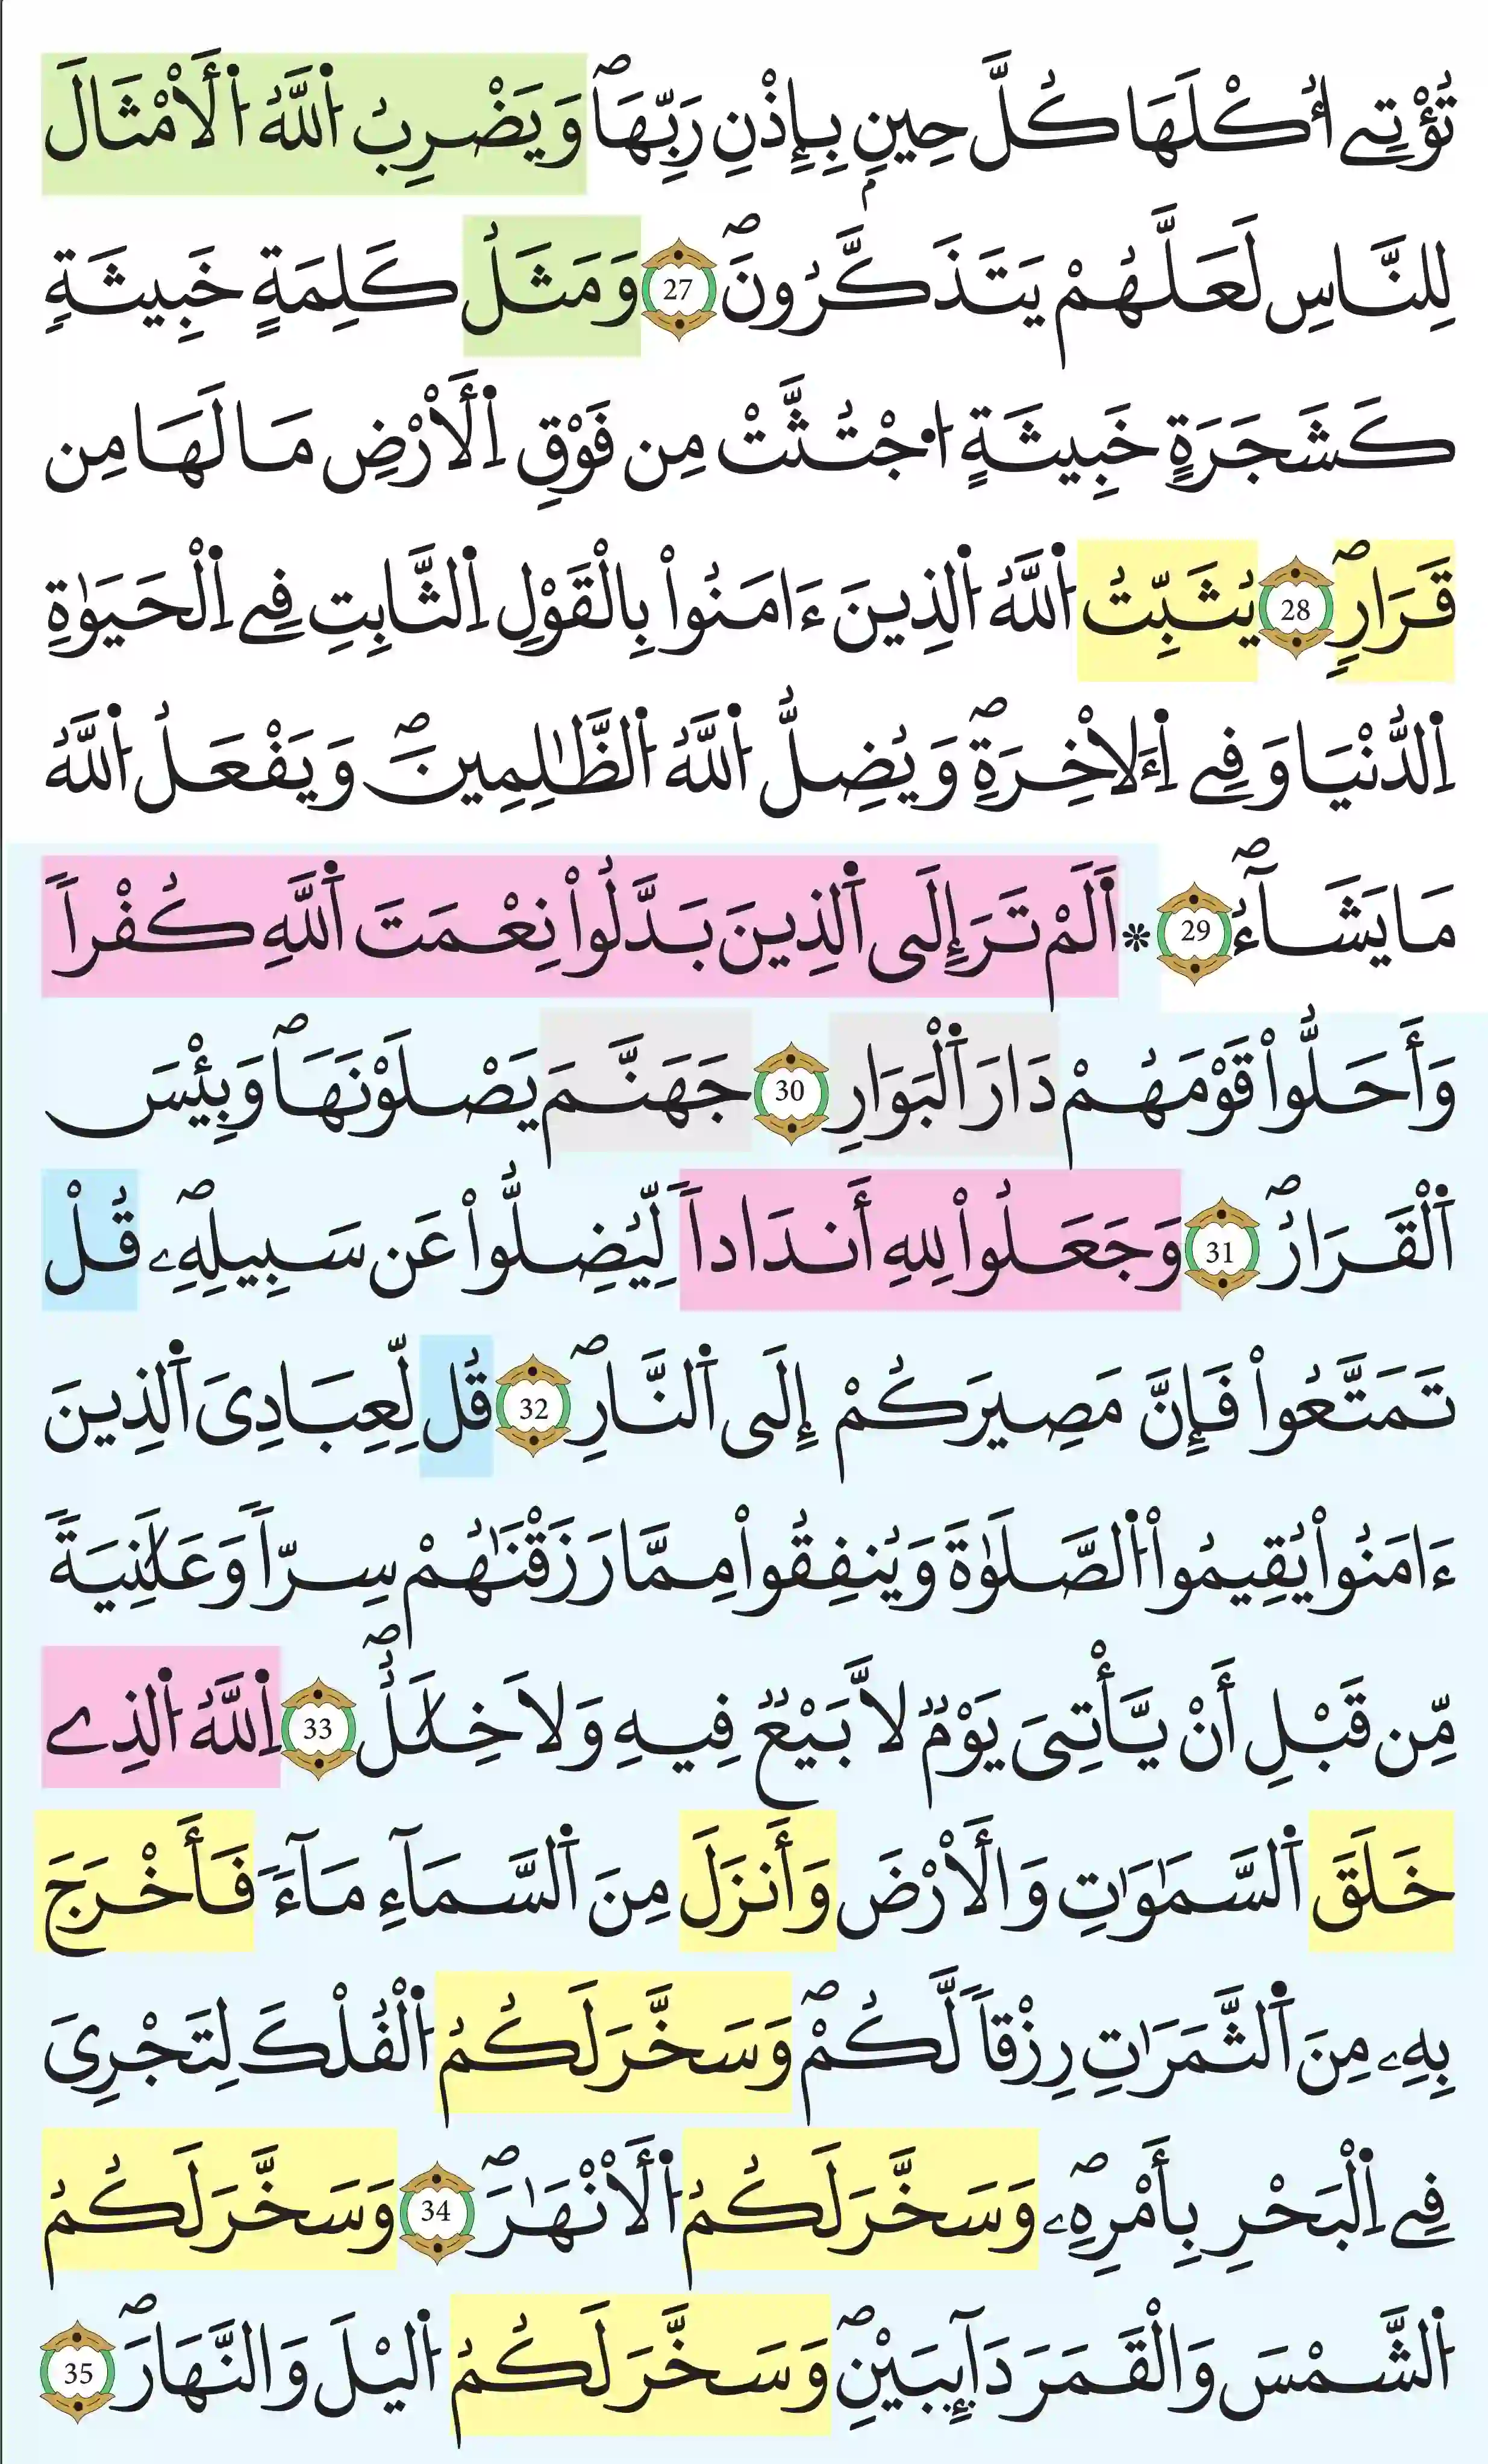 تُؤْتِے أُكْلَهَا كُلَّ حِينِۢ بِإِذْنِ رَبِّهَاۖ وَيَضْرِبُ اُ۬للَّهُ اُ۬لَامْثَالَ
لِلنَّاسِ لَعَلَّهُمْ يَتَذَكَّرُونَۖ 27 وَمَثَلُ كَلِمَةٍ خَبِيثَةٍ
كَشَجَرَةٍ خَبِيثَةٍ اُ۟جْتُثَّتْ مِن فَوْقِ اِ۬لَارْضِ مَا لَهَا مِن
قَرَارٖۖ 28 يُثَبِّتُ اُ۬للَّهُ اُ۬لذِينَ ءَامَنُواْ بِالْقَوْلِ اِ۬لثَّابِتِ فِے اِ۬لْحَيَوٰةِ
اِ۬لدُّنْيَا وَفِے اِ۬لَاخِرَةِۖ وَيُضِلُّ اُ۬للَّهُ اُ۬لظَّٰلِمِينَۖ وَيَفْعَلُ اُ۬للَّهُ
مَا يَشَآءُۖ 29 * اَلَمْ تَرَ إِلَى اَ۬لذِينَ بَدَّلُواْ نِعْمَتَ اَ۬للَّهِ كُفْراٗ
وَأَحَلُّواْ قَوْمَهُمْ دَارَ اَ۬لْبَوَارِ 30 جَهَنَّمَ يَصْلَوْنَهَاۖ وَبِئْسَ
اَ۬لْقَرَارُۖ 31 وَجَعَلُواْ لِلهِ أَندَاداٗ لِّيُضِلُّواْ عَن سَبِيلِهِۦۖ قُلْ
تَمَتَّعُواْ فَإِنَّ مَصِيرَكُمْ إِلَى اَ۬لنَّارِۖ 32 قُل لِّعِبَادِيَ اَ۬لذِينَ
ءَامَنُواْ يُقِيمُواْ اُ۬لصَّلَوٰةَ وَيُنفِقُواْ مِمَّا رَزَقْنَٰهُمْ سِرّاٗ وَعَلَٰنِيَةٗ
مِّن قَبْلِ أَنْ يَّأْتِيَ يَوْمٞ لَّا بَيْعٞ فِيهِ وَلَا خِلَٰلٌۖ 33 اِ۬للَّهُ اُ۬لذِے
خَلَقَ اَ۬لسَّمَٰوَٰتِ وَالَارْضَ وَأَنزَلَ مِنَ اَ۬لسَّمَآءِ مَآءٗ فَأَخْرَجَ
بِهِۦ مِنَ اَ۬لثَّمَرَٰتِ رِزْقاٗ لَّكُمْۖ وَسَخَّرَ لَكُمُ اُ۬لْفُلْكَ لِتَجْرِيَ
فِے اِ۬لْبَحْرِ بِأَمْرِهِۦۖ وَسَخَّرَ لَكُمُ اُ۬لَانْهَٰرَۖ 34 وَسَخَّرَ لَكُمُ
اُ۬لشَّمْسَ وَالْقَمَرَ دَآئِبَيْنِۖ وَسَخَّرَ لَكُمُ اُ۬ليْلَ وَالنَّهَارَۖ 35